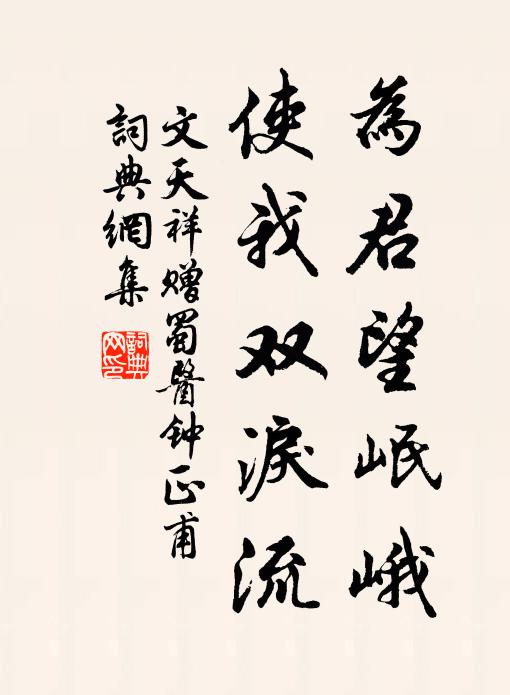 為君望岷峨
使我双淚流
文天祥贈蜀醫钟正甫
詞典網集
詞典
网印